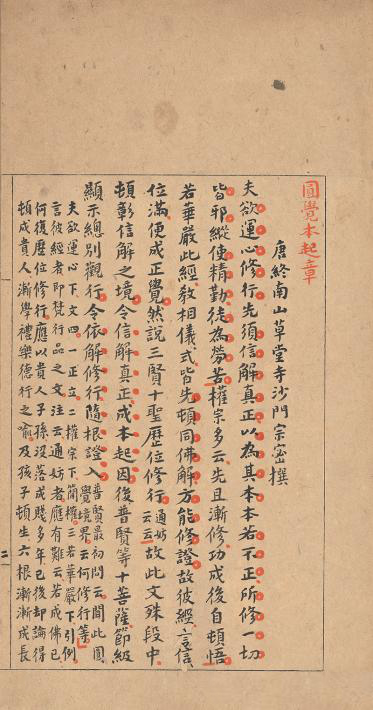 圓覺本起章
唐終南山草堂寺沙門宗密撰
夫欲運心修行先須信解真正以為其本本若不正所修一切
皆邪縱使精勤徒為勞苦權宗多云先且漸修功成後自頓悟
若華嚴此經教相儀式皆先頓同佛解方能修證故彼經言信
位滿便成正覺然說三賢十聖歷位修行云云通妨故此文殊段中
頓彰信解之境令信解真正成本起因後普賢等十菩薩節級
顯示總別觀行令依解修行隨根證入普賢最初問云聞此圓覺境界云何修行等
夫欲運心下文四一正立二權宗下簡權三若華嚴下引例
言彼經者即梵行品之文注云通妨者應有難云若成佛已
何復歷位修行應以貴人子孫沒落成賤多年已後却論得
頓成貴人漸學禮樂德行之喻及孩子頓生六根漸漸成長
二